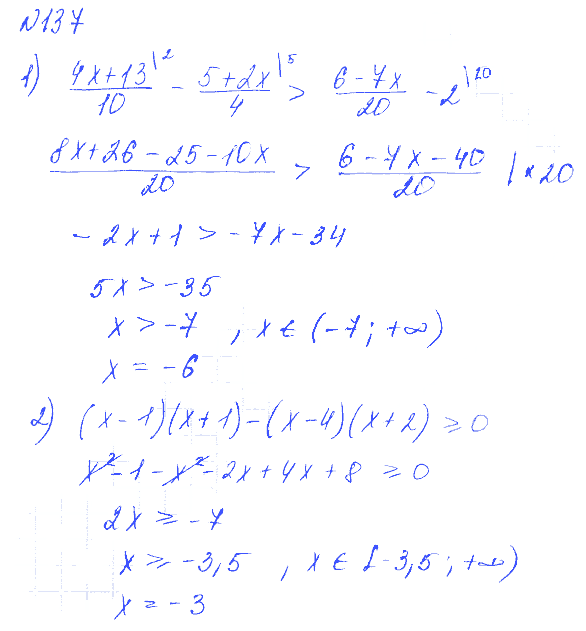 №137
1) (4x+13)/10 |2 - (5+2x)/4 |5 > (6-7x)/20 - 2 |20
(8x+26-25-10x)/20 > (6-7x-40)/20 | ×20
-2x+1 > -7x-34
5x > -35
x > -7 , x ∈ (-7; +∞)
x = -6
2) (x-1)(x+1)-(x-4)(x+2) ≥ 0
x²-1-x²-2x+4x+8 ≥ 0
2x ≥ -7
x ≥ -3,5 , x ∈ [-3,5; +∞)
x = -3